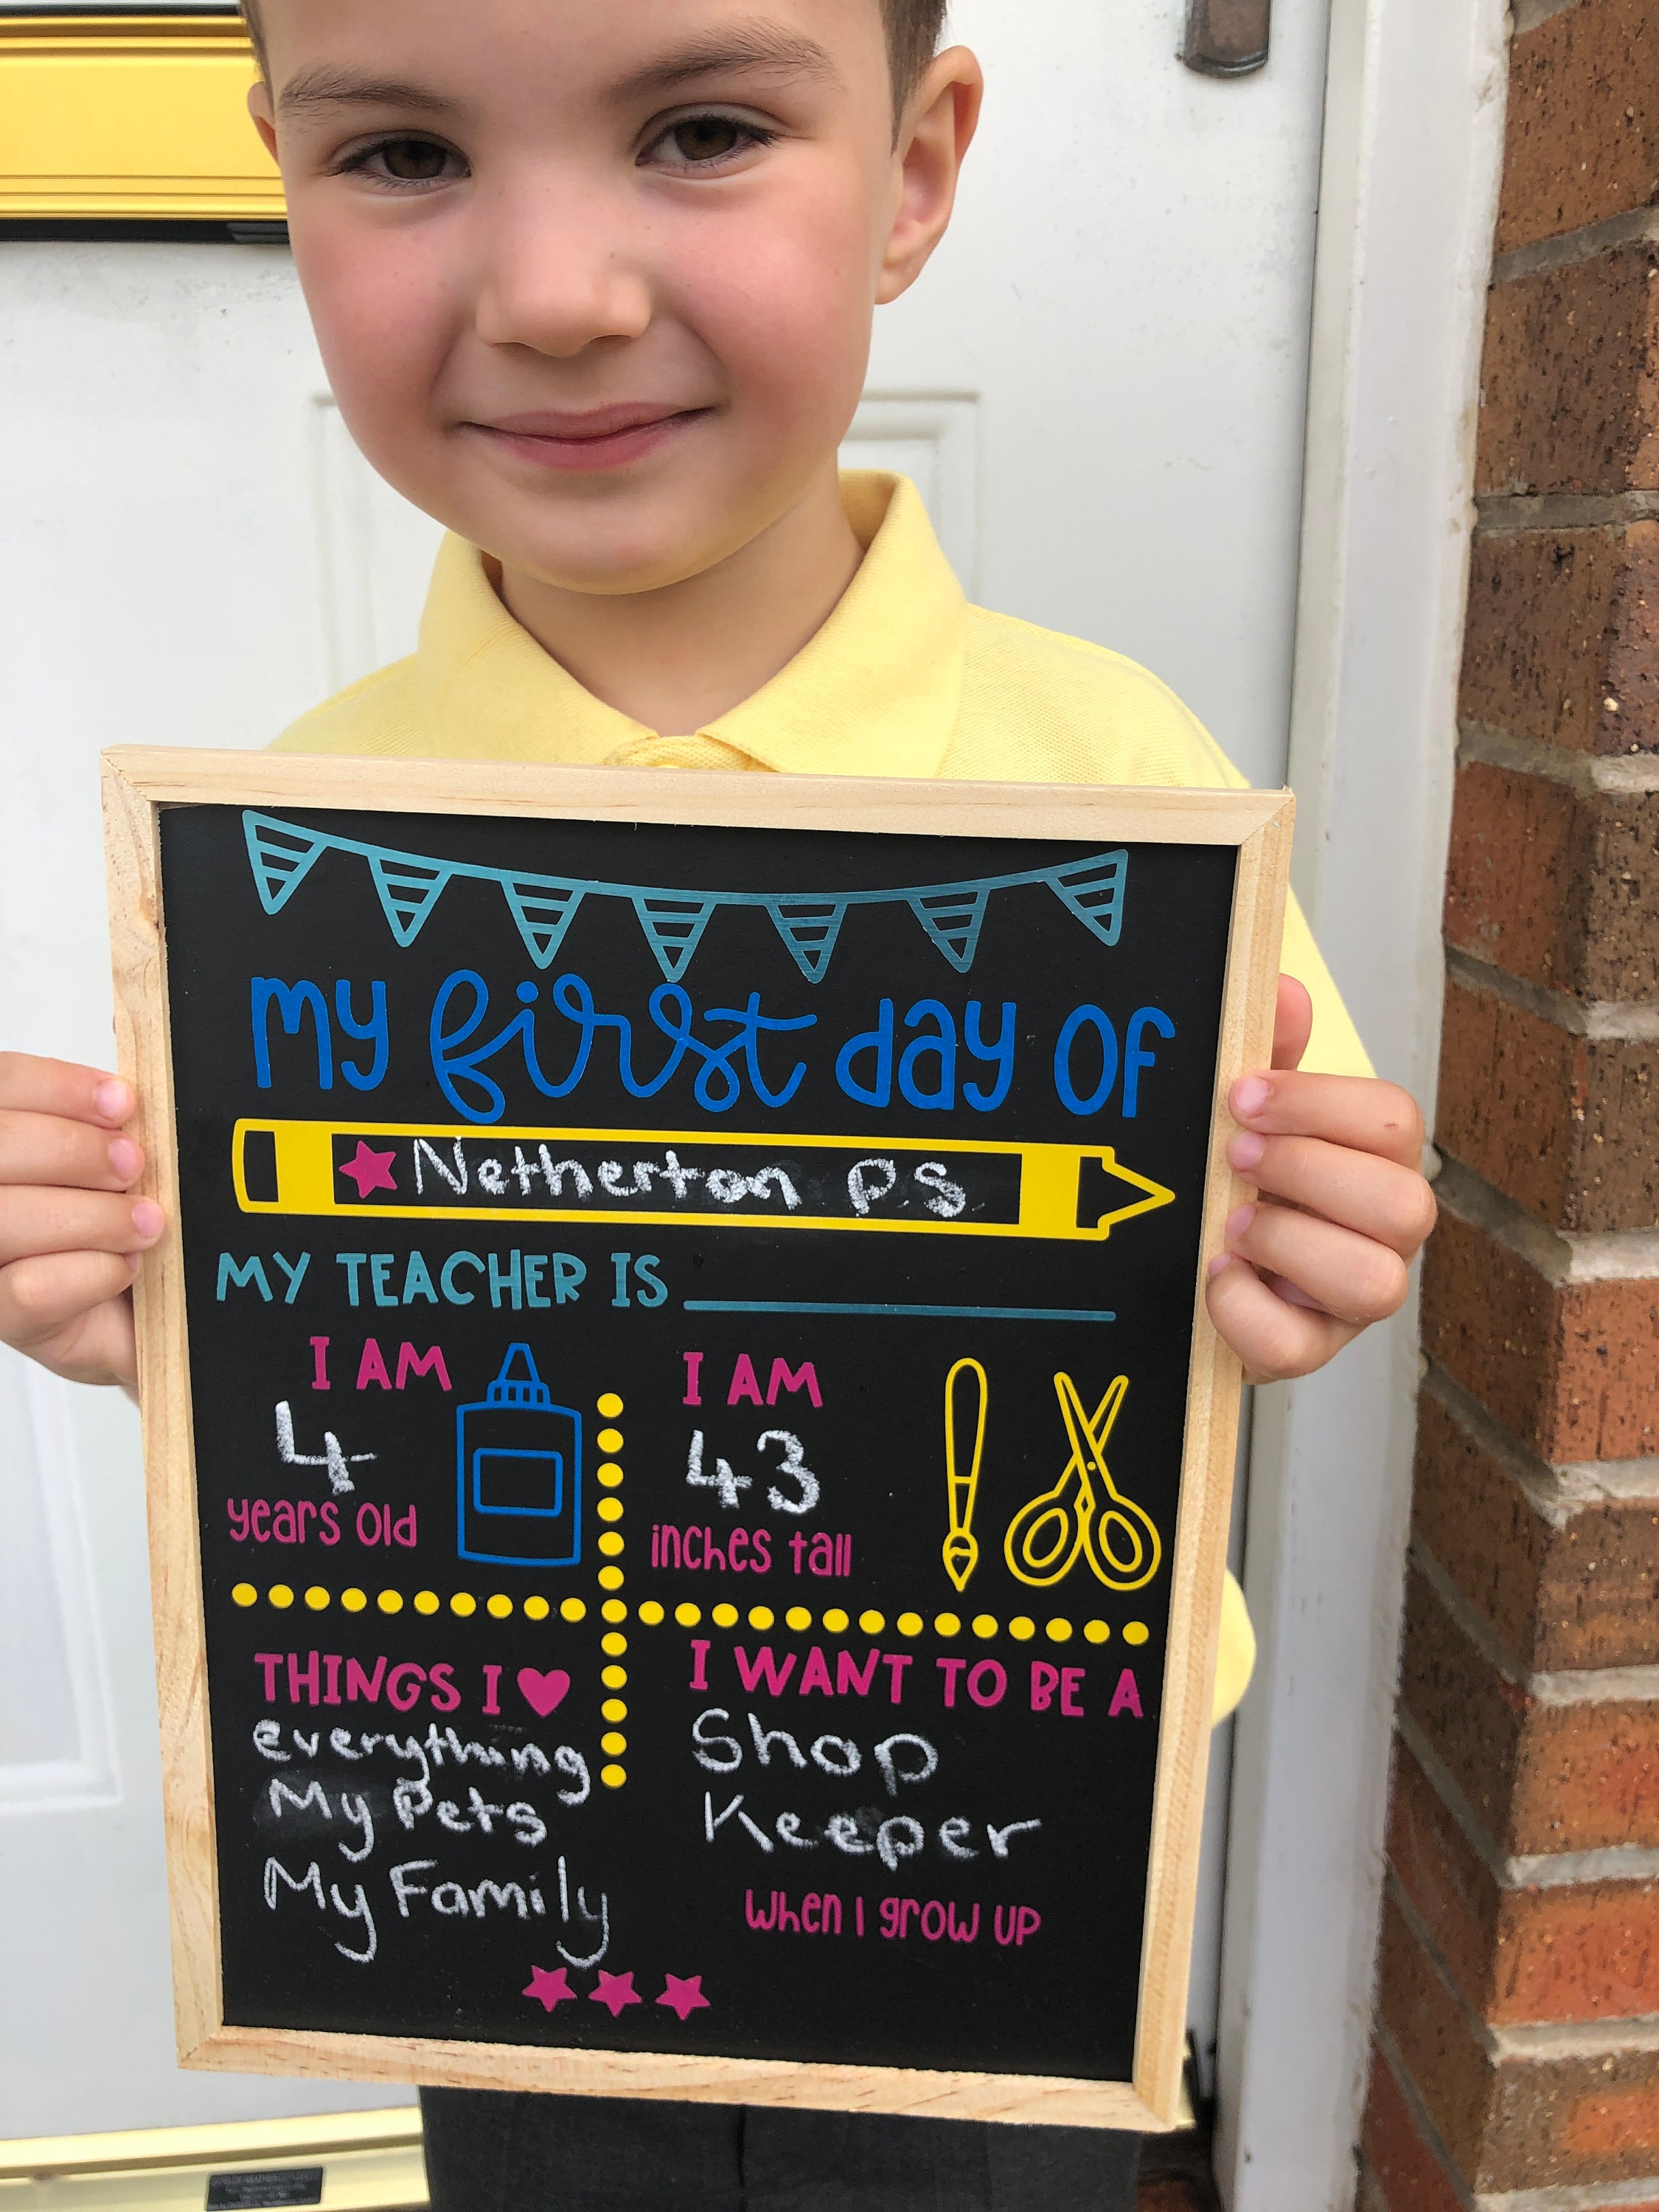 my first day of
Netherton P.S.
MY TEACHER IS
I AM
4
years old
I AM
43
inches tall
THINGS I
everything
My Pets
My Family
I WANT TO BE A
Shop
Keeper
when I grow up